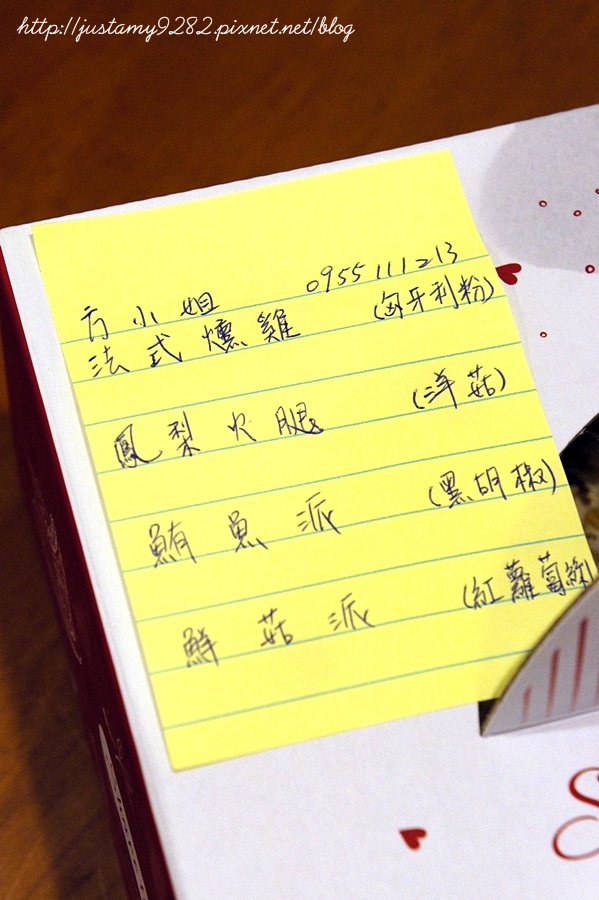 http://justamy9282.pixnet.net/blog
方小姐 0955111213
法式燻雞 (匈牙利粉)
鳳梨火腿 (洋菇)
鮪魚派 (黑胡椒)
鮮菇派 (紅蘿蔔絲)